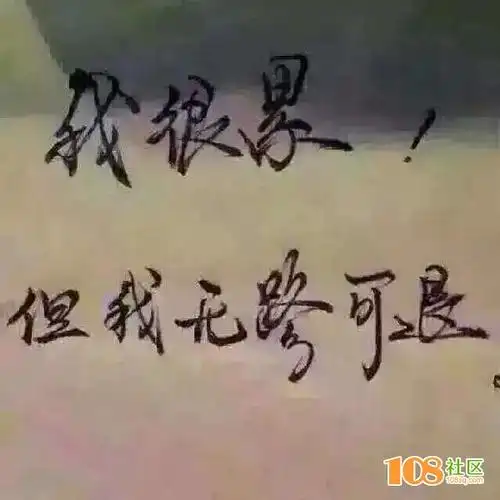 我很累！
但我无路可退。
108社区
108sq.com